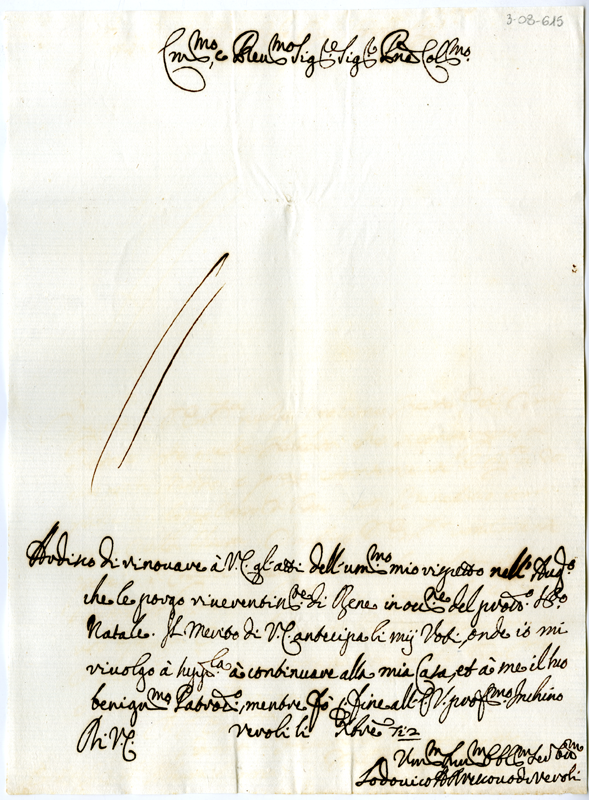 3-08-615
Em.mo, e Reu.mo Sig.re Sig.re P.ne Col.mo
Ardisco di rinouare à V.E. gl'atti dell'um.mo mio rispetto nell'Aug.o
che le porgo riuerentiss.te di Bene in occ.ne del pross.o S.to
Natale. Il Merito di V.E. antecipa li miei Voti, onde io mi
riuolgo à supp.la à continuare alla mia Casa, et à me il suo
benign.mo Patroc.o, mentre fò fine all'E.V. prof.mo Inchino
Di V.E. Veroli li Xbre 712
Um.mo
Lodouico Vescouo di Veroli